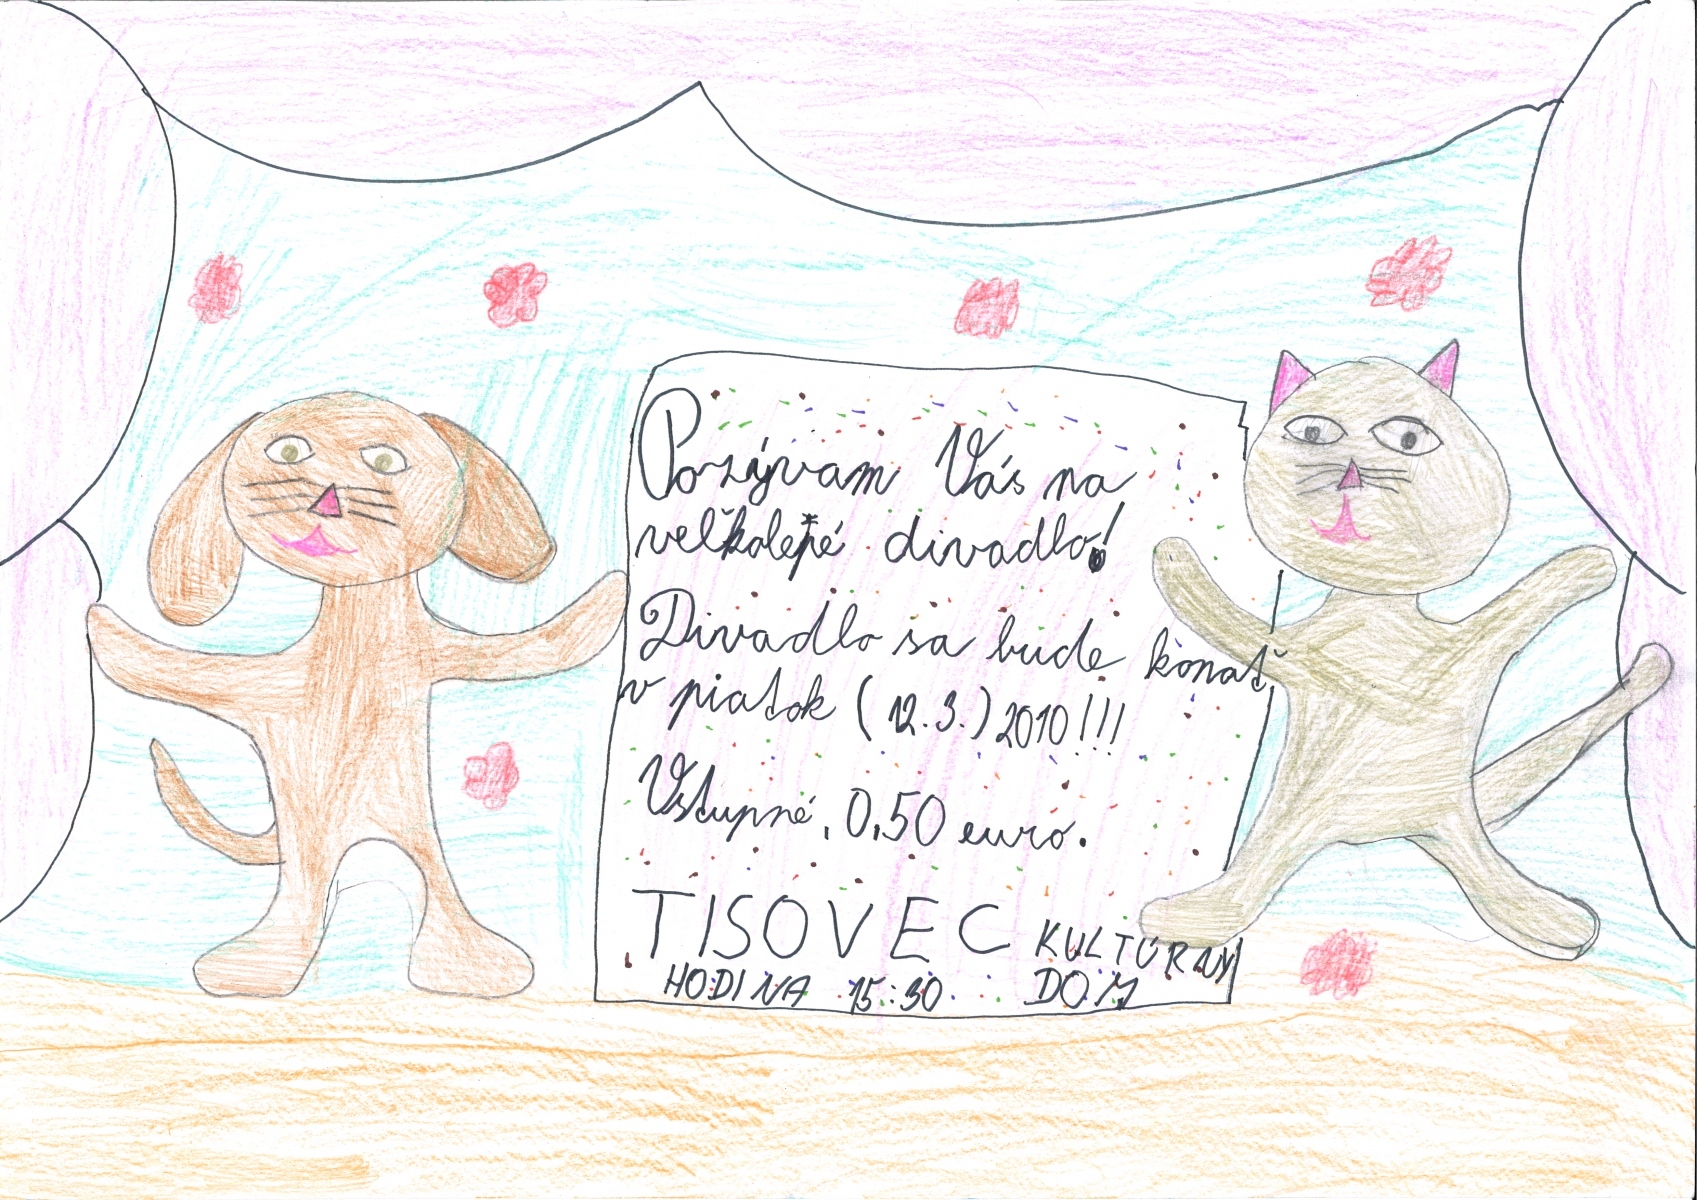 Pozývam Vás na
veľkolepé divadlo!
Divadlo sa bude konať
v piatok (12.3.) 2010!!!
Vstupné, 0,50 euro.
TISOVEC KULTÚRNY
HODINA 15:30 DOM